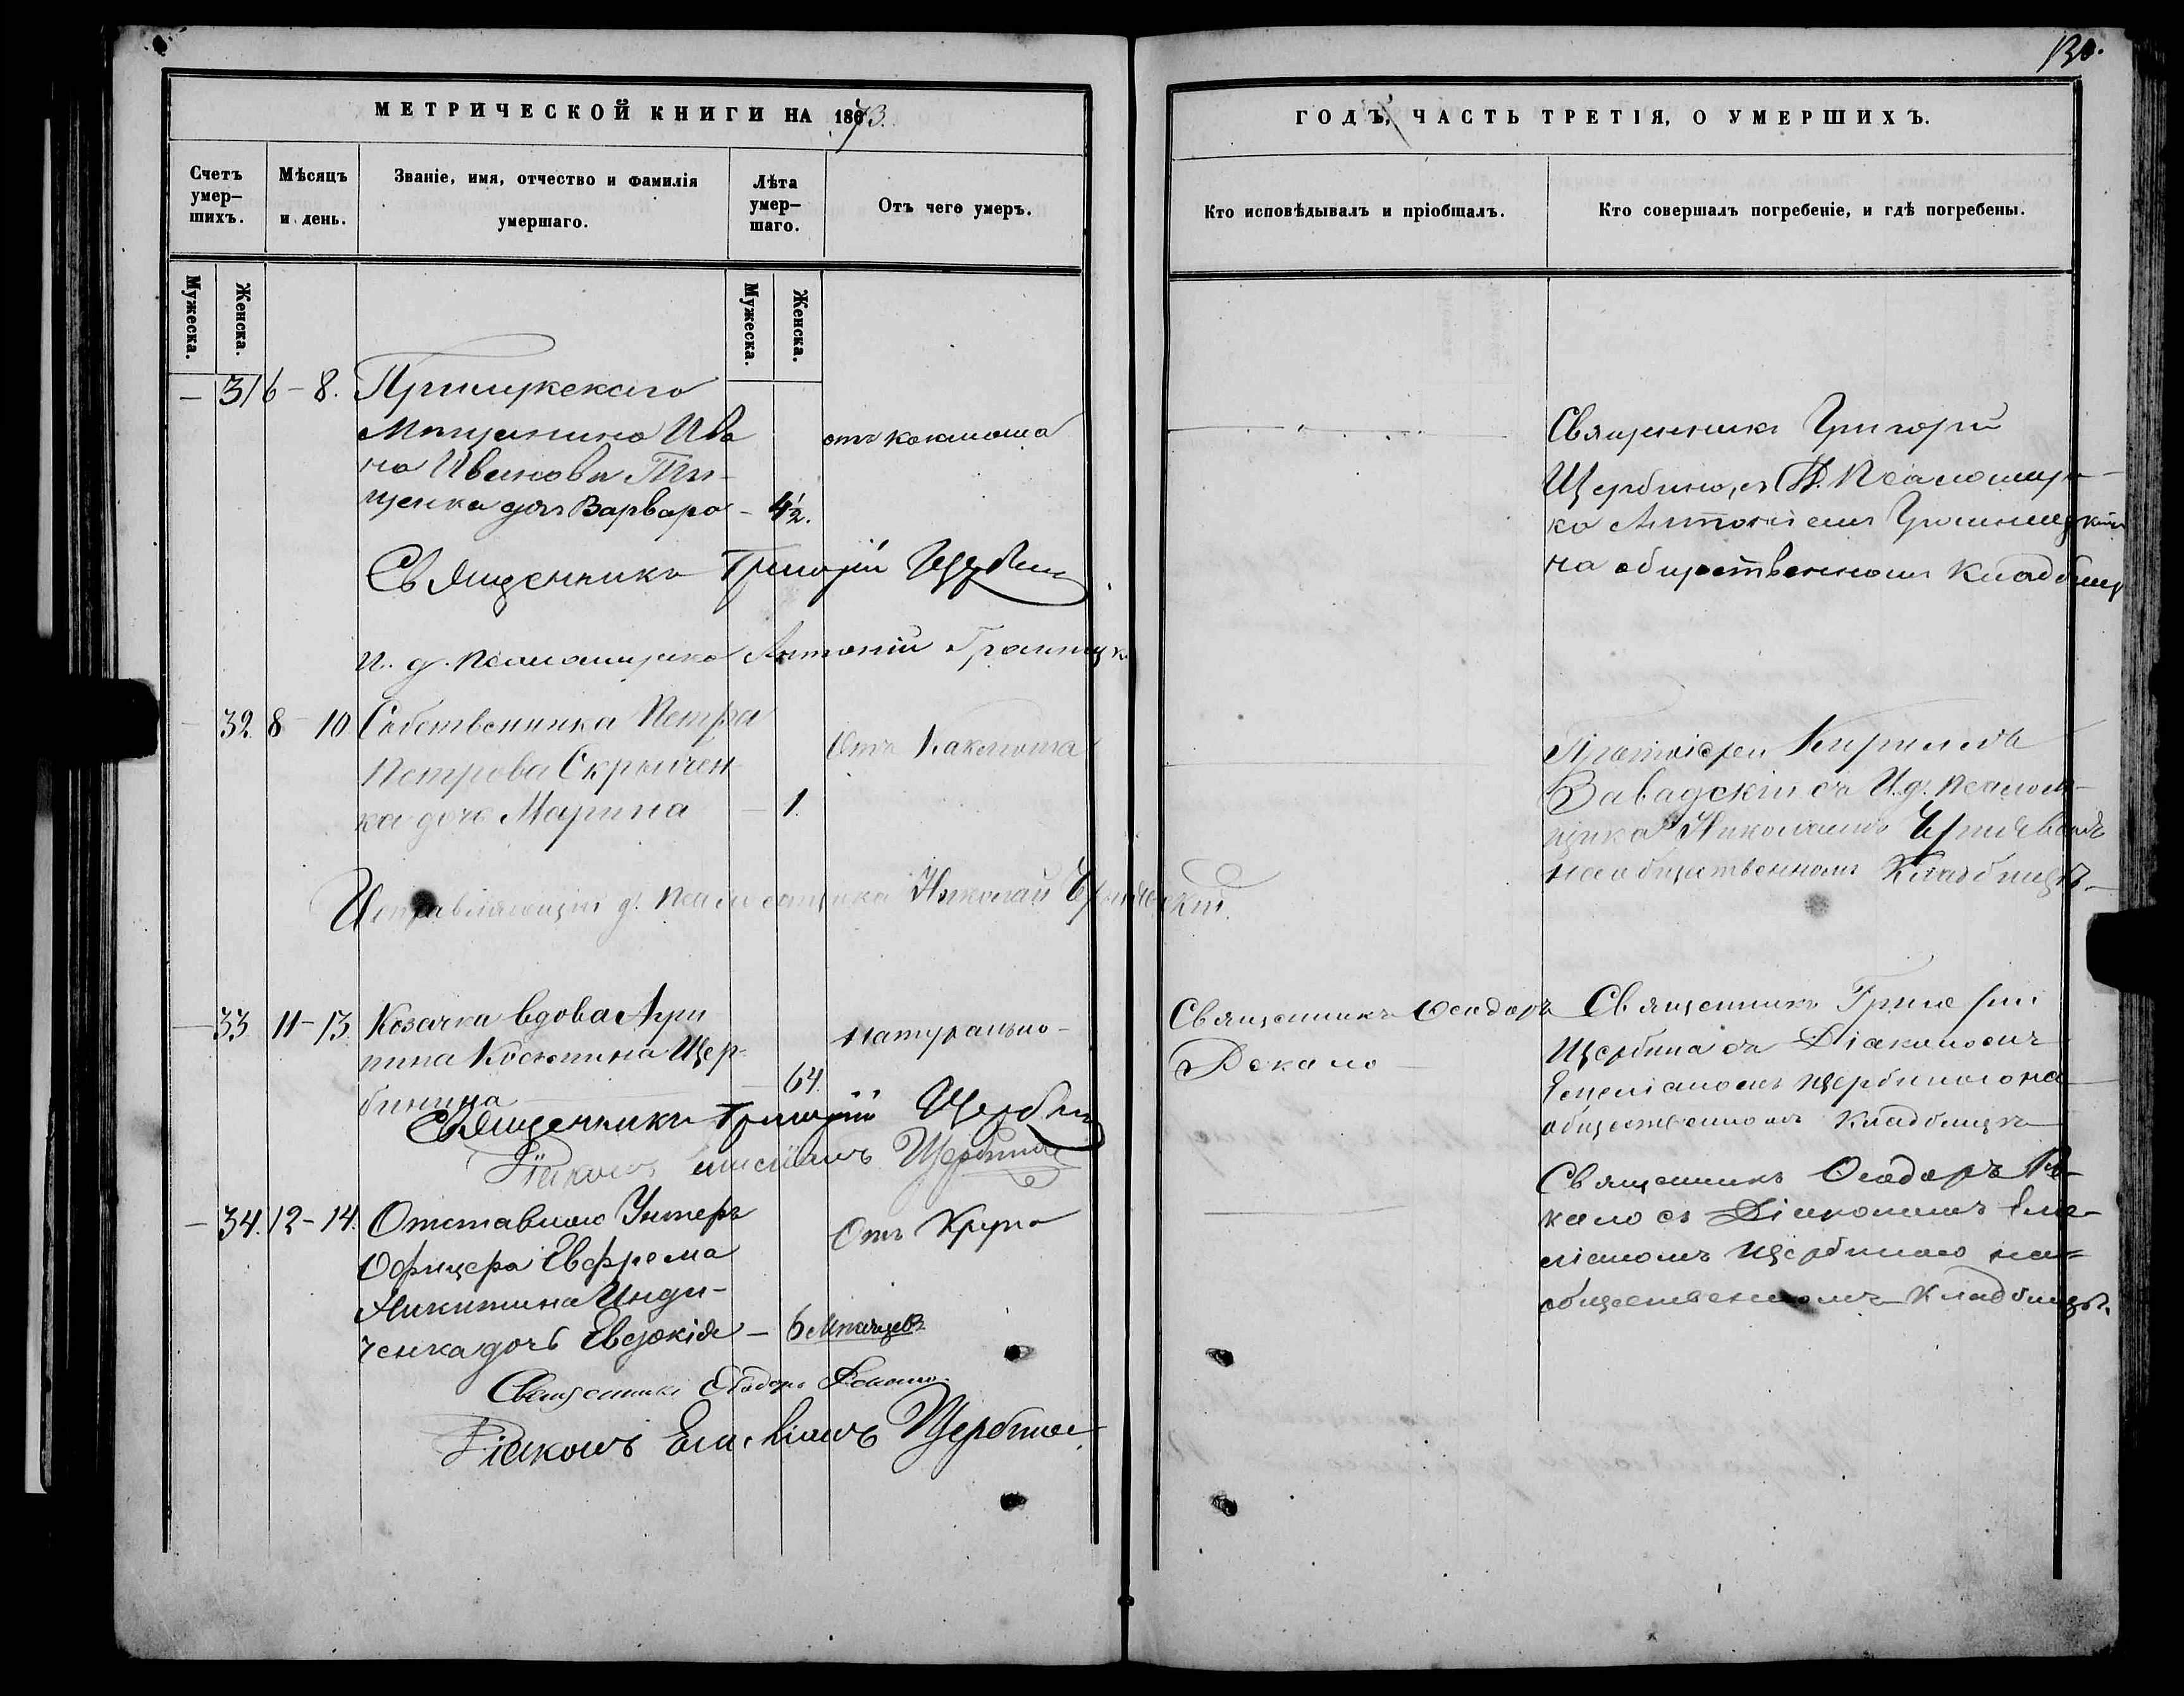 130.
МЕТРИЧЕСКОЙ КНИГИ НА 1873.
ГОДЪ, ЧАСТЬ ТРЕТІЯ, О УМЕРШИХЪ.
Счетъ умер-шихъ.
Мѣсяцъ и день.
Званіе, имя, отчество и фамилія умершаго.
Лѣта умер-шаго.
Отъ чего умеръ.
Кто исповѣдывалъ и пріобщалъ.
Кто совершалъ погребеніе, и гдѣ погребены.
Мужеска.
Женска.
Мужеска.
Женска.
— 31 6 - 8. Прилукскаго
Мѣщанина Ива
на Иванова Ти-
щенка дочь Варвара - 4½.
отъ коклюша
Священникъ Григорій
Щербина, съ Псаломщи-
ко Антоніемъ
на общественномъ кладбищѣ
Священникъ Григорій Щербина
И. д. псаломщика Антоній
32. 8 - 10 Собственника Петра
Петрова Скрыпчен
ка дочь Марина — 1.
Отъ Коклюша
Протоіерей Кириллъ
Завадскій съ И. д. псалом-
щика Николаемъ
на общественномъ Кладбищѣ
Исправляющій д. псаломщика Николай
— 33 11 - 13. Козачка вдова Агри
пина Костина Щер-
бинина — 64.
натурально -
Священникъ Ѳеодоръ
Декало
Священникъ Григорій
Щербина съ Діакономъ
Емеліаномъ Щербиною на
общественномъ Кладбищѣ
Священникъ Григорій Щербина
Діаконъ Емеліанъ Щербина
— 34. 12 - 14. Отставнаго Унтеръ
Офицера Евфрема
Никитина Инди-
ченка дочь Евдокія — 6 Мѣсяцевъ
Отъ Крупа
Священникъ Ѳеодоръ Де-
кало съ Діакономъ Еме-
ліаномъ Щербиною на=
общественномъ Кладбищѣ.
Священникъ Ѳеодоръ Декало.
Діаконъ Емеліанъ Щербина